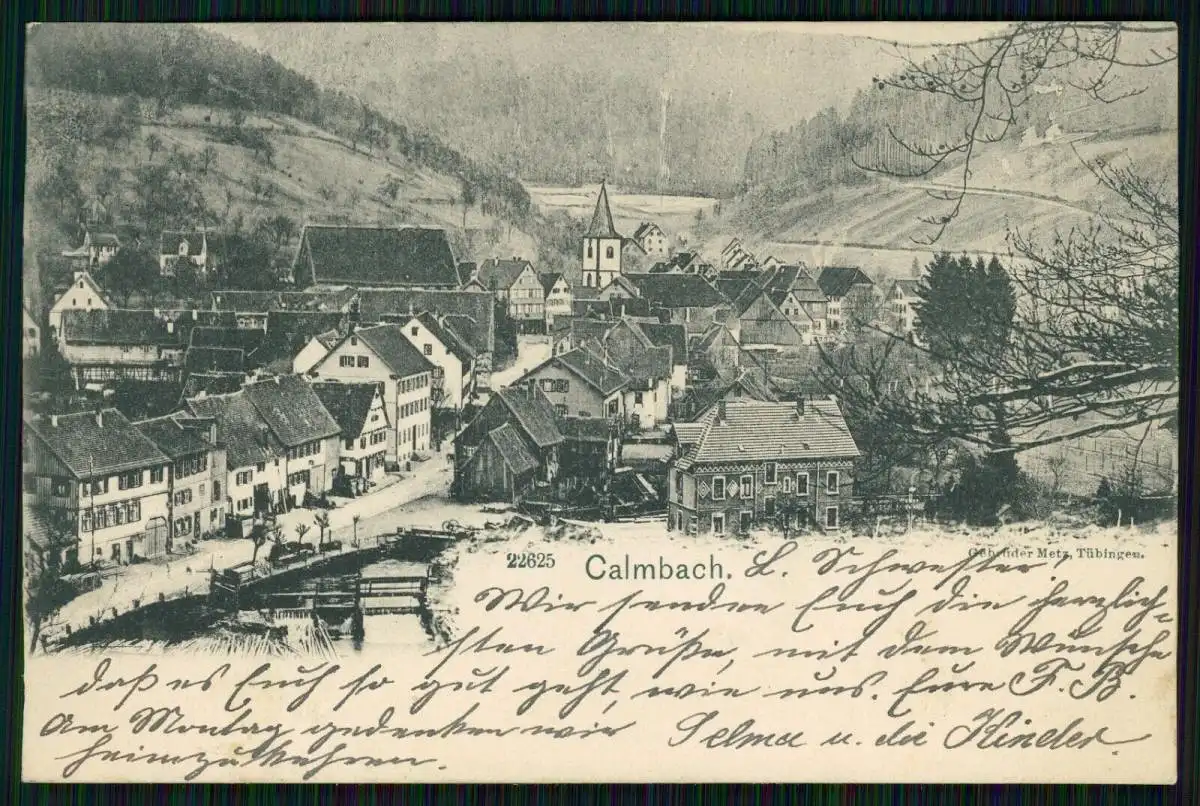 22625 Calmbach.
Gebrüder Metz, Tübingen.
L. Schwester,
Wir senden Euch die herzlich-
sten Grüße, mit dem Wunsche
daß es Euch so gut geht, wie uns. Eure F. B.
Am Montag gedenken wir Selma u. die Kinder
heimzukehren.